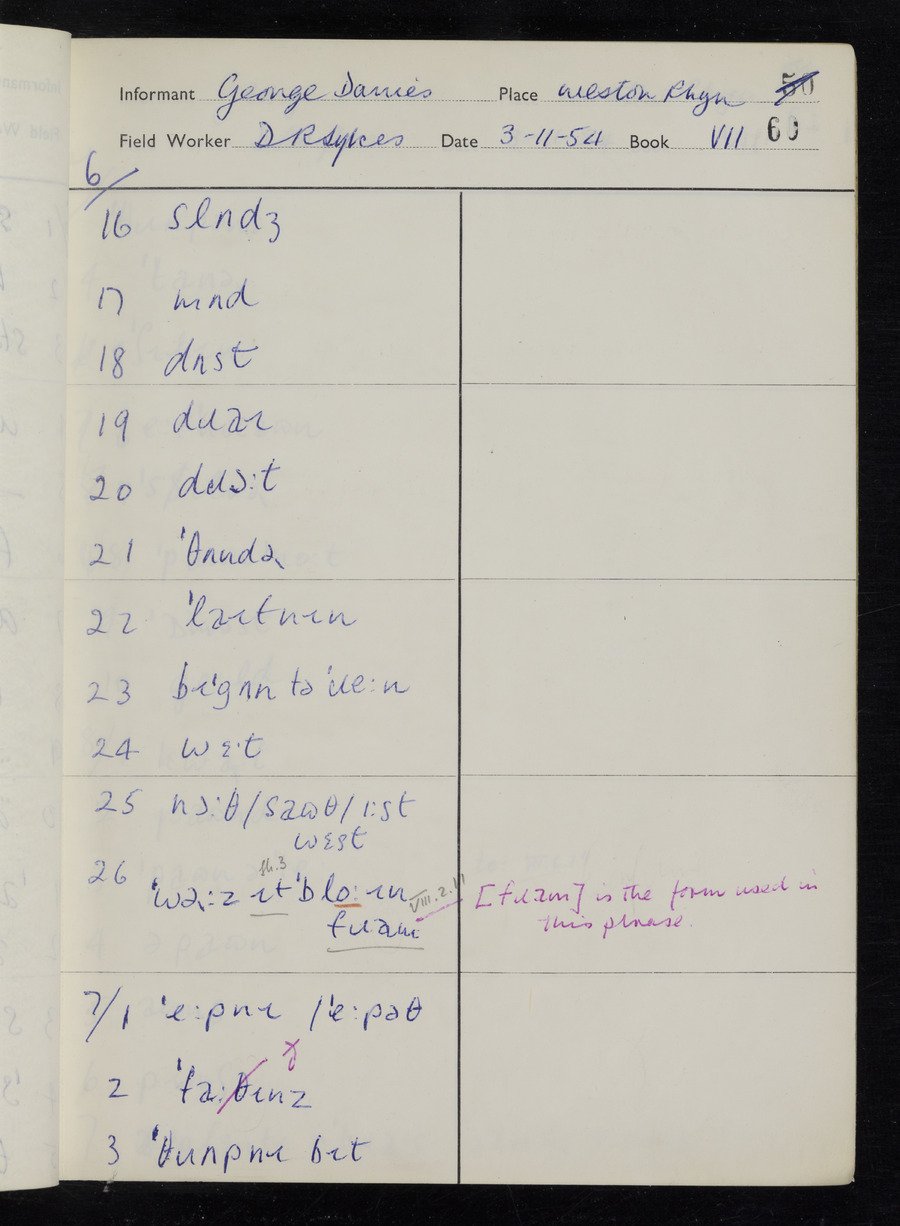 Informant George Davies Place Weston Rhyn 50
Field Worker D R Sykes Date 3-11-54 Book VII 60
6/
16 slʌdʒ
17 mʌd
18 dʌst
19 dɹəɪ
20 dɹɔːt
21 ˈθʌndə
22 ˈləɪtnɪn
23 bɪˈgʌn tə ˈɹeːn
24 wɛt
25 nɔːθ/səωθ/iːst
wɛst
26 ˈwəːz ɪt ˈbloːɪn VIII.2.11
fɹəm
[fɹəm] is the form used in
this phrase.
7/1 ˈeːpnɪ /ˈeːpəθ
2 ˈfaːðɪnz
3 ˈθɹʌpnɪ bɪt